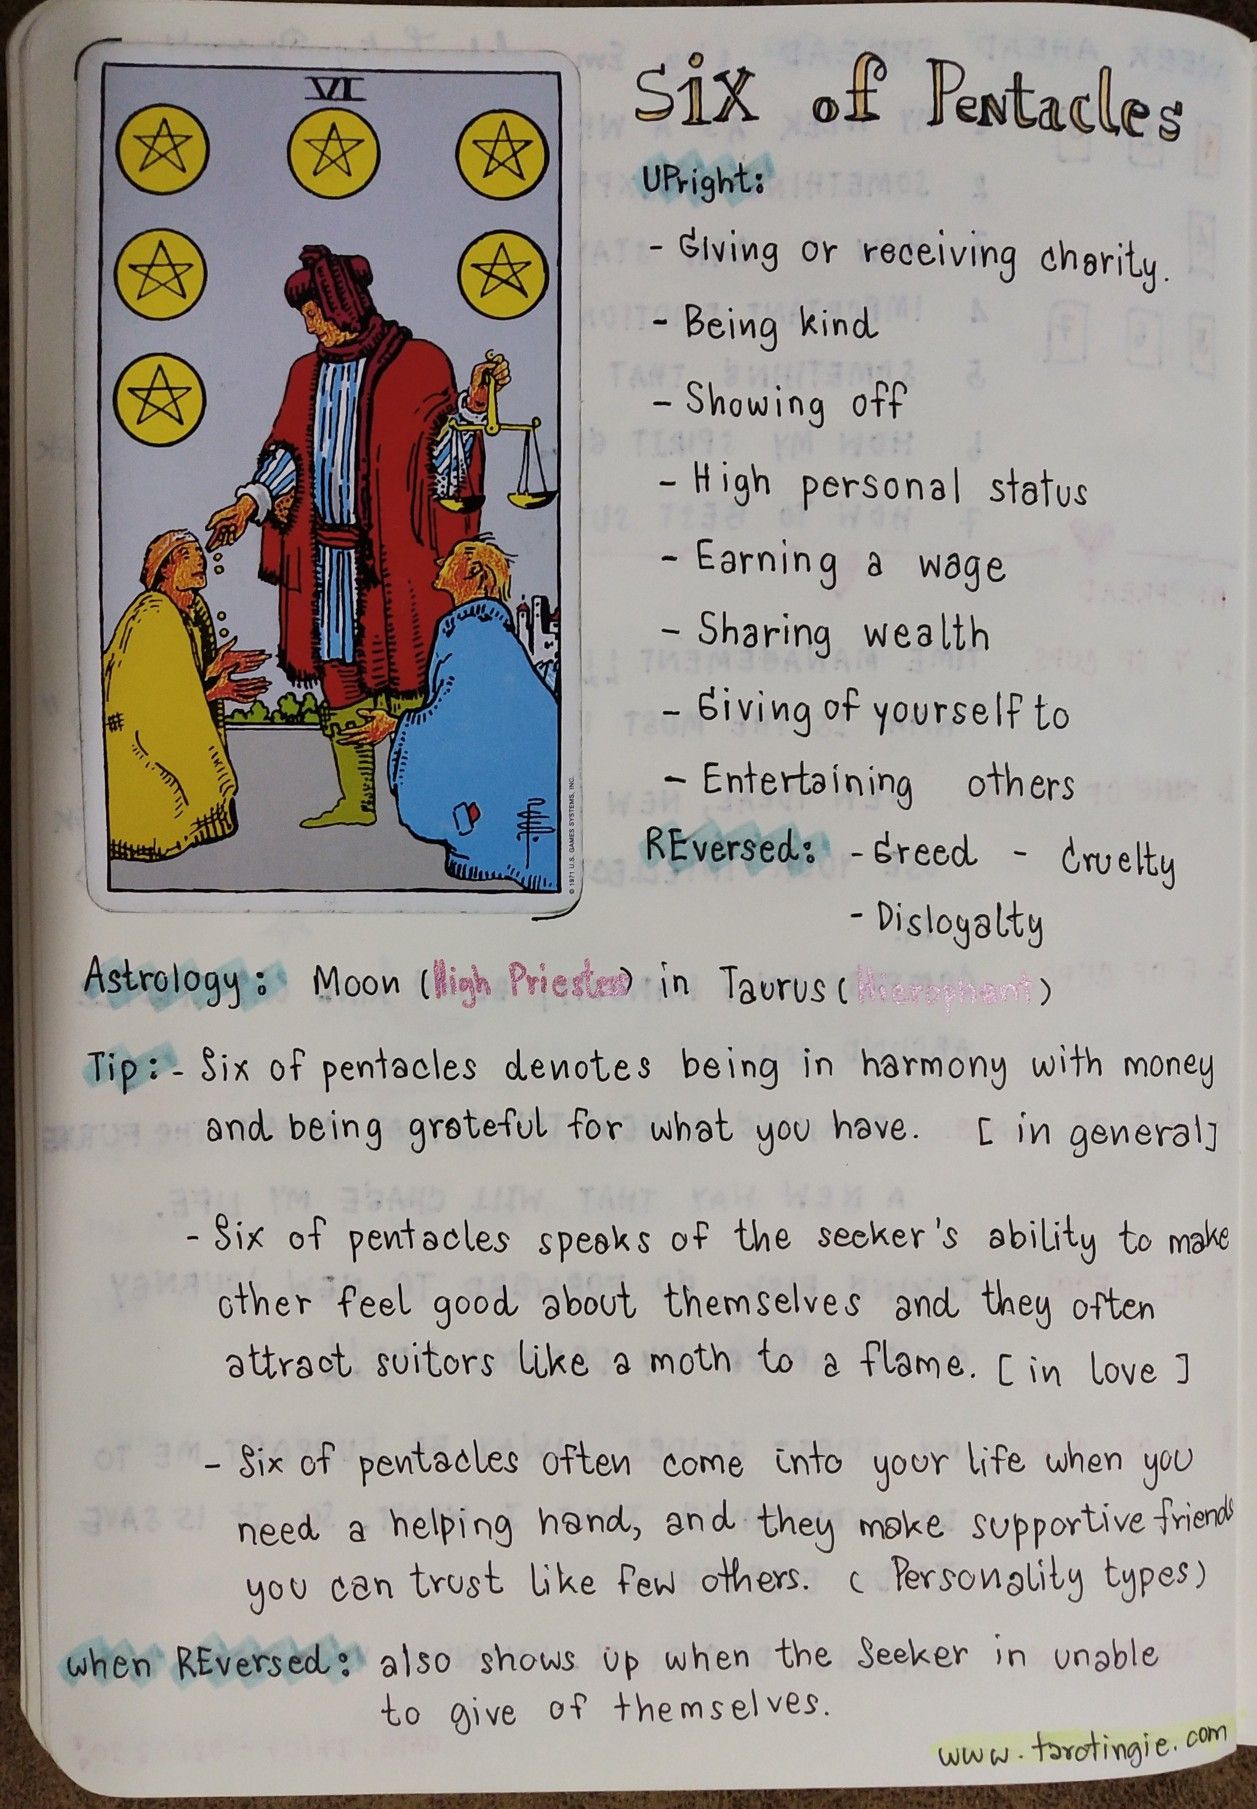 VI
Six of Pentacles
UPright:
- Giving or receiving charity.
- Being kind
- Showing off
- High personal status
- Earning a wage
- Sharing wealth
- Giving of yourself to
- Entertaining others
REversed: - Greed - Cruelty
- Disloyalty
© 1971 U.S. GAMES SYSTEMS, INC.
Astrology: Moon (High Priestess) in Taurus (Hierophant)
Tip: - Six of pentacles denotes being in harmony with money
and being grateful for what you have. [ in general]
- Six of pentacles speaks of the seeker's ability to make
other feel good about themselves and they often
attract suitors like a moth to a flame. [ in love ]
- Six of pentacles often come into your life when you
need a helping hand, and they make supportive friends
you can trust like few others. ( Personality types)
when REversed: also shows up when the Seeker in unable
to give of themselves.
www.tarotingie.com